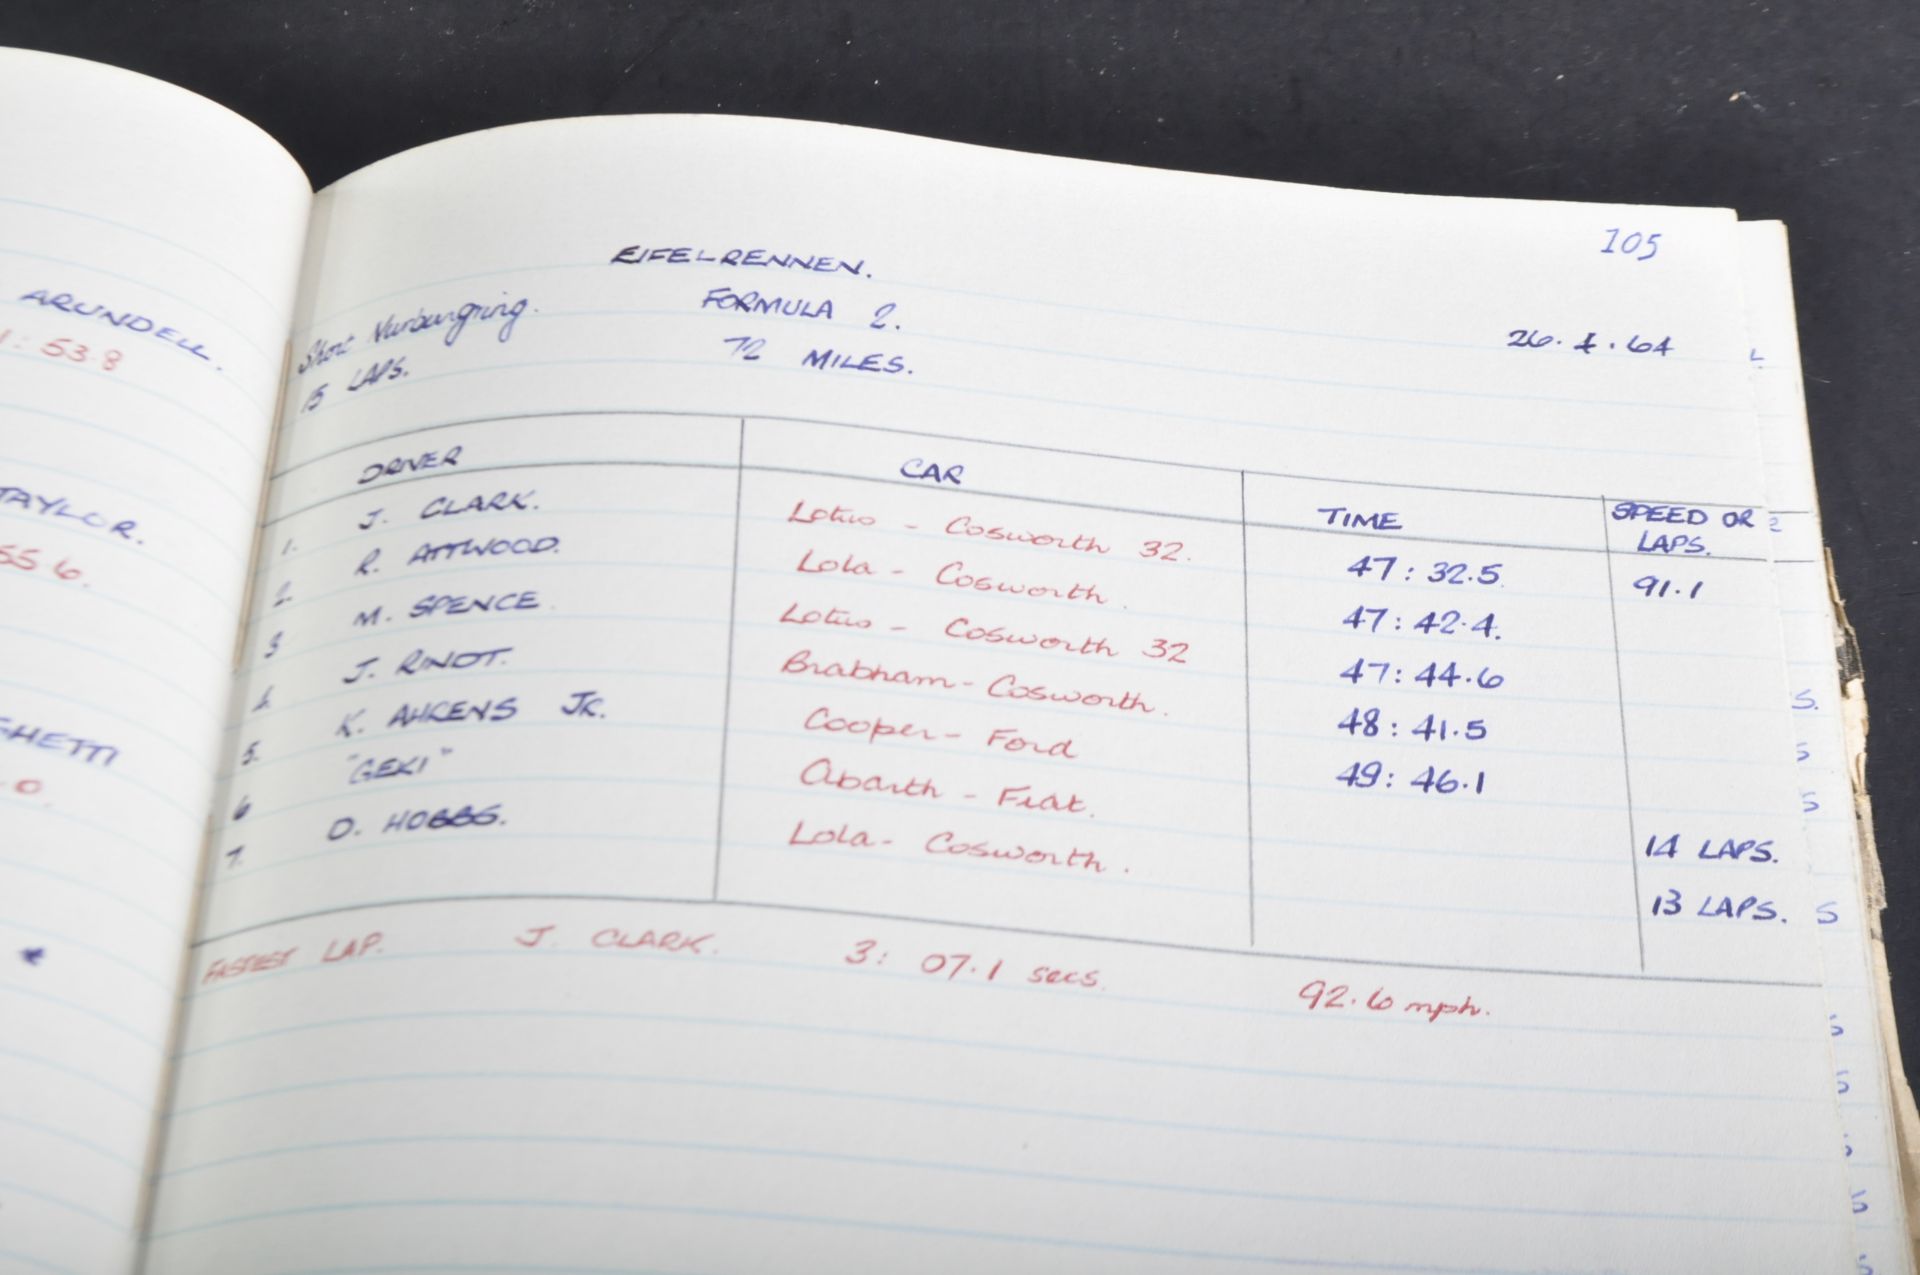 ARUNDELL.
1:53.8
TAYLOR.
55.6.
GHETTI
.0.
105
EIFELRENNEN.
Short Nurburgring. FORMULA 2. 26.4.64
15 LAPS. 72 MILES.
DRIVER CAR TIME SPEED OR LAPS.
1. J. CLARK. Lotus - Cosworth 32. 47:32.5. 91.1
2. R. ATTWOOD. Lola - Cosworth. 47:42.4.
3 M. SPENCE. Lotus - Cosworth 32 47:44.6
4. J. RINDT. Brabham - Cosworth. 48:41.5
5. K. AHRENS JR. Cooper - Ford 49:46.1
6 "GEKI" Abarth - Fiat. 14 LAPS.
7. D. HOBBS. Lola - Cosworth. 13 LAPS.
FASTEST LAP. J. CLARK. 3:07.1 secs. 92.6 mph.